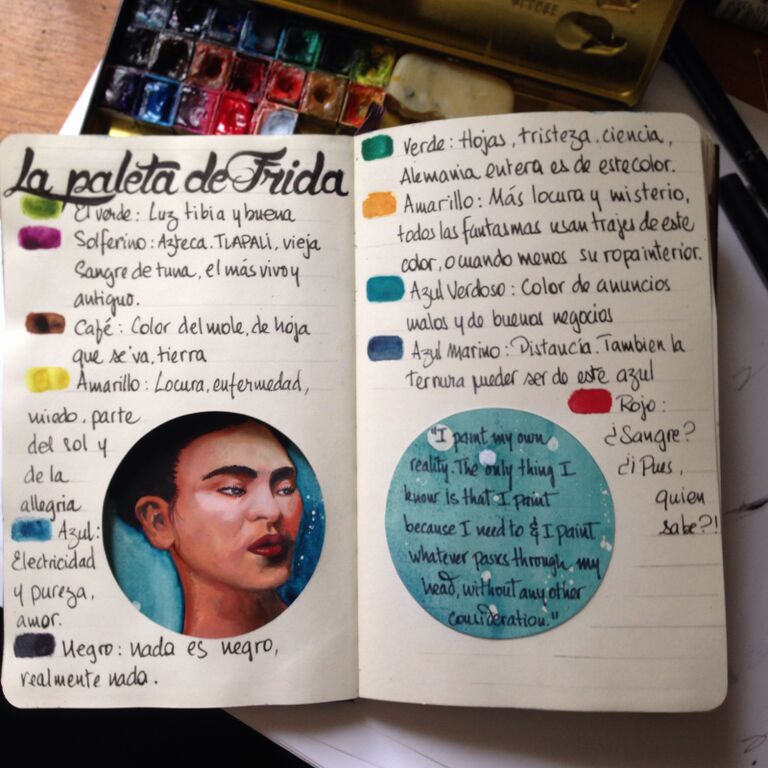 La paleta de Frida
El verde: Luz tibia y buena
Solferino: Azteca. TLAPALI, vieja
Sangre de tuna, el más vivo y
antiguo.
Café: Color del mole, de hoja
que se va, tierra
Amarillo: Locura, enfermedad,
miedo. parte
del sol y
de la
allegria
Azul:
Electricidad
y pureza,
amor.
Negro: nada es negro,
realmente nada.
Verde: Hojas, tristeza. ciencia,
Alemania entera es de este color.
Amarillo: Más locura y misterio,
todos las fantasmas usan trajes de este
color, o cuando menos su ropa interior.
Azul Verdoso: Color de anuncios
malos y de buenos negocios
Azul Marino: Distancía. Tambien la
ternura pueder ser de este azul
Rojo:
¿Sangre?
¿¡Pues,
quien
sabe?!
"I paint my own
reality. The only thing I
know is that I paint
because I need to & I paint
whatever passes through my
head, without any other
consideration."